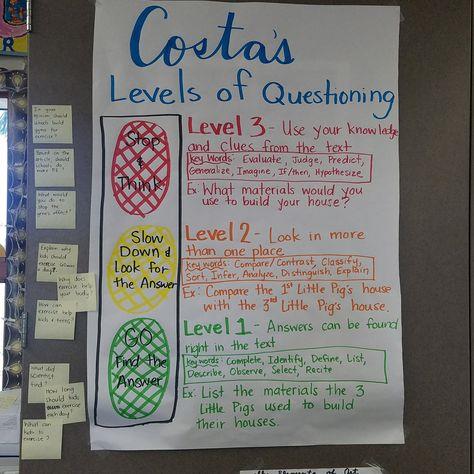 Costa's
Levels of Questioning
Stop
&
Think
Level 3 - Use your knowledge
and clues from the text
Key Words: Evaluate, Judge, Predict,
Generalize, Imagine, If/then, Hypothesize
Ex: What materials would you
use to build your house?
Slow
Down &
Look for
the Answer
Level 2 - Look in more
than one place
Key words: Compare/Contrast, Classify,
Sort, Infer, Analyze, Distinguish, Explain
Ex: Compare the 1st Little Pig's house
with the 3rd Little Pig's house.
GO
Find the
Answer
Level 1 - Answers can be found
right in the text
Key words: Complete, Identify, Define, List,
Describe, Observe, Select, Recite
Ex: List the materials the 3
Little Pigs used to build
their houses.
In your
opinion should
which build
gyms for
exercise?
Based on the
article, should
schools do
more
What would
you do to
stop the
effect?
Explain why
kids should
exercise
a day?
What does
exercise help
your body?
How can
exercise help
kids & teens?
What did
scientist
find?
How long
should kids
exercise
each day?
What can
help to
exercise?
Elements of Art